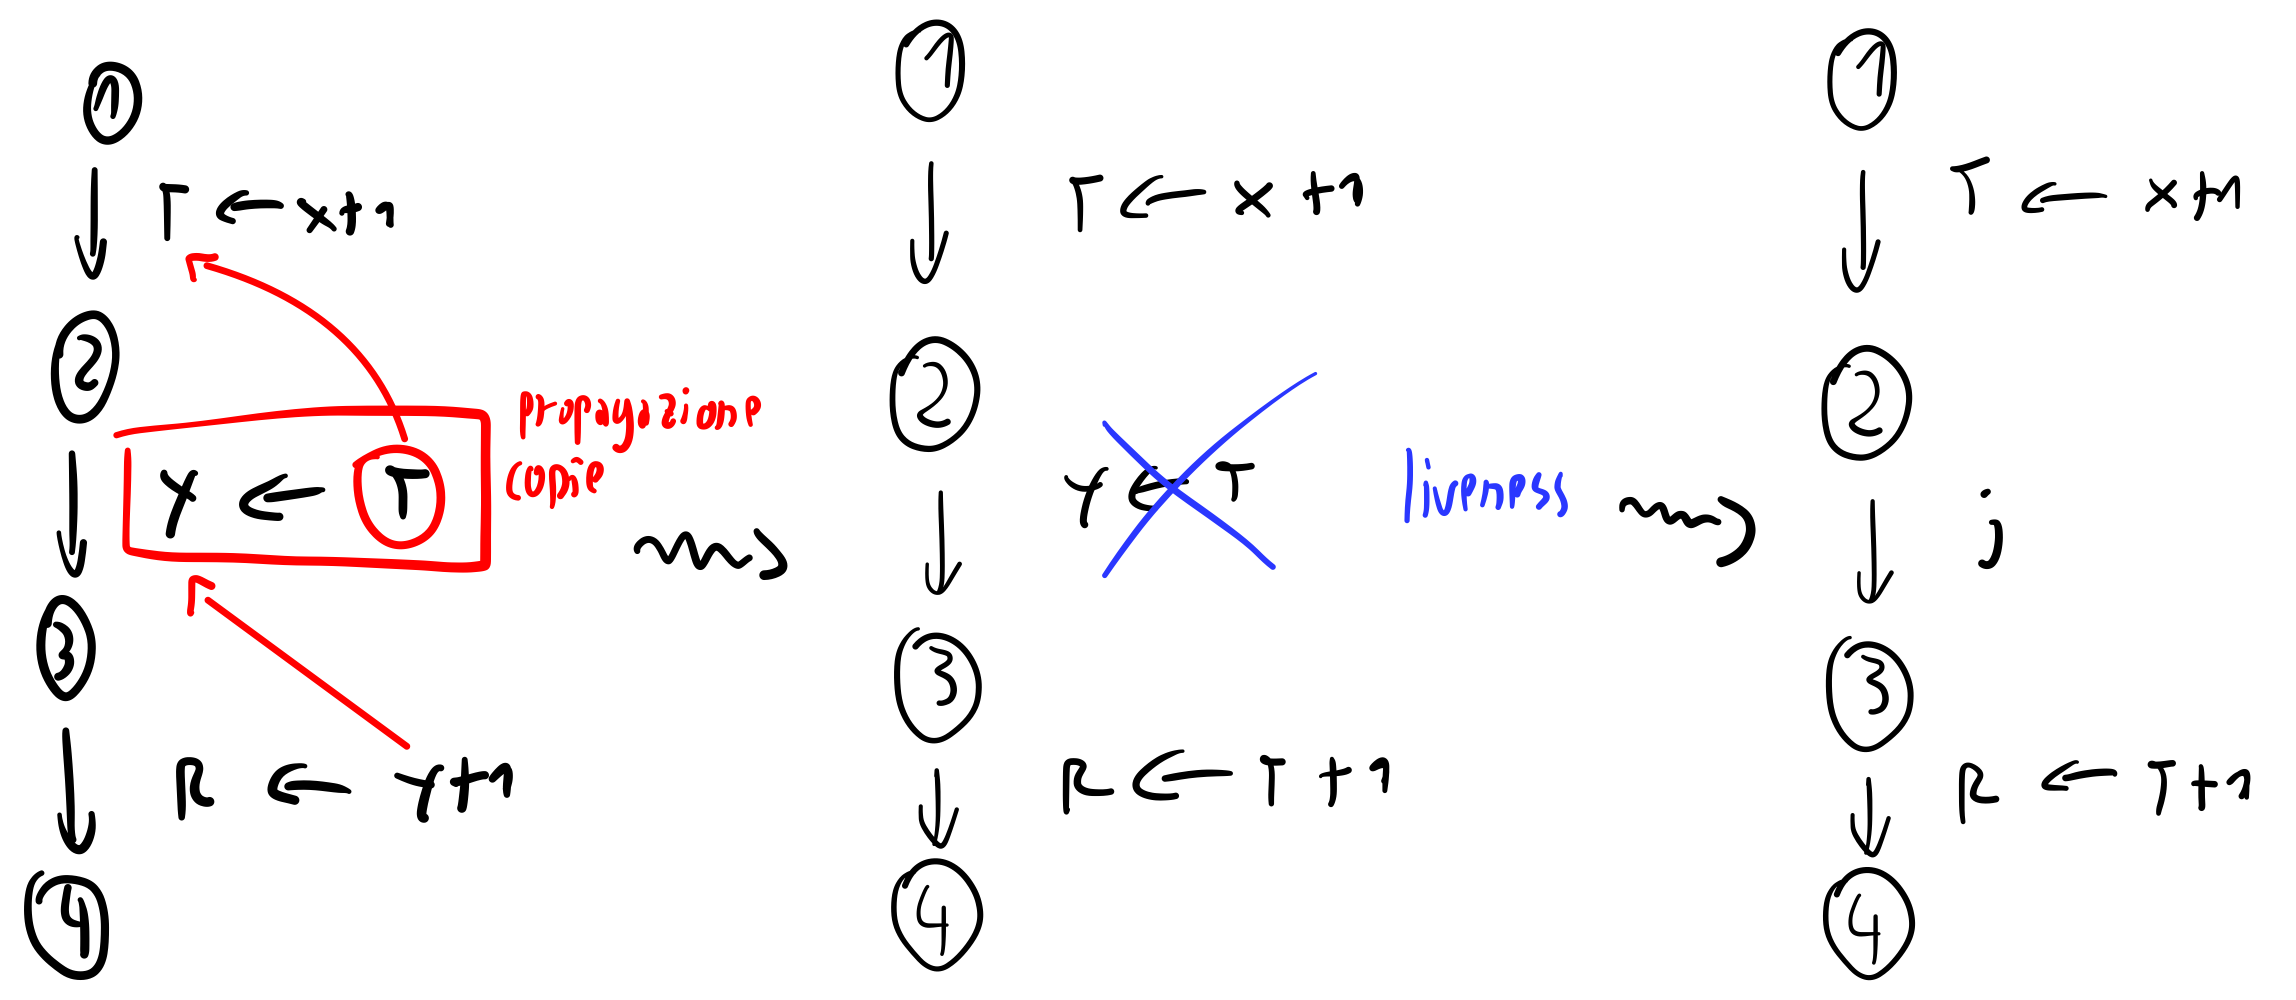 1
T ← x+1
2
Y ← T
propagazione
copie
3
R ← Y+1
4
1
T ← x+1
2
Y ← T
liveness
3
R ← T+1
4
1
T ← x+1
2
;
3
R ← T+1
4